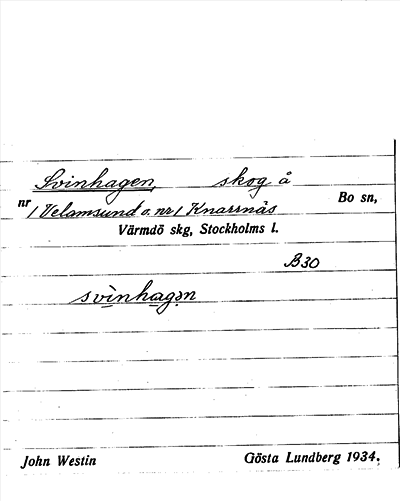 Svinhagen, skog å
nr 1 Velamsund o. nr 1 Knarrnäs Bo sn,
Värmdö skg, Stockholms l.
B30
svìnhagən
John Westin Gösta Lundberg 1934.